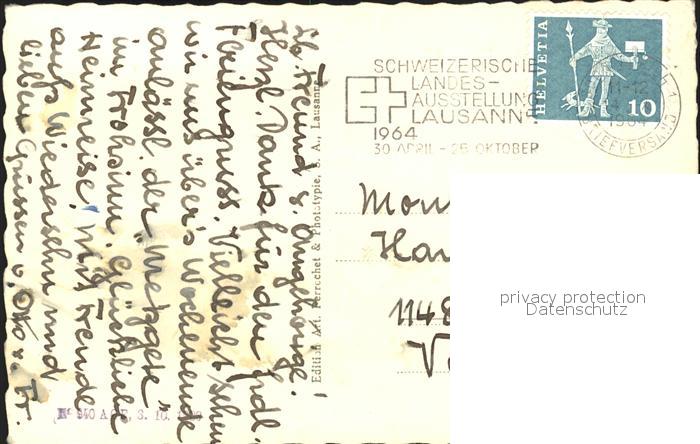 Lb. Freund u. Angehörige!
Herzl. Dank für den frdl.
Feriengruss. Vielleicht sehen
wir uns über's Wochenende
anlässl. der "Metzgete"
im Frohsinn. Glückliche
Heimreise! Mit Freude
aufs Wiedersehn und
lieben Grüssen v. Otto u. Fr.
Edition Art. Perrochet & Phototypie, S. A., Lausanne
SCHWEIZERISCHE
LANDES-
AUSSTELLUNG
LAUSANNE
1964
30 APRIL - 25 OKTOBER
HELVETIA
10
11-12
1964
BRIEFVERSAND
Mon
Han
1148
V
privacy protection
Datenschutz